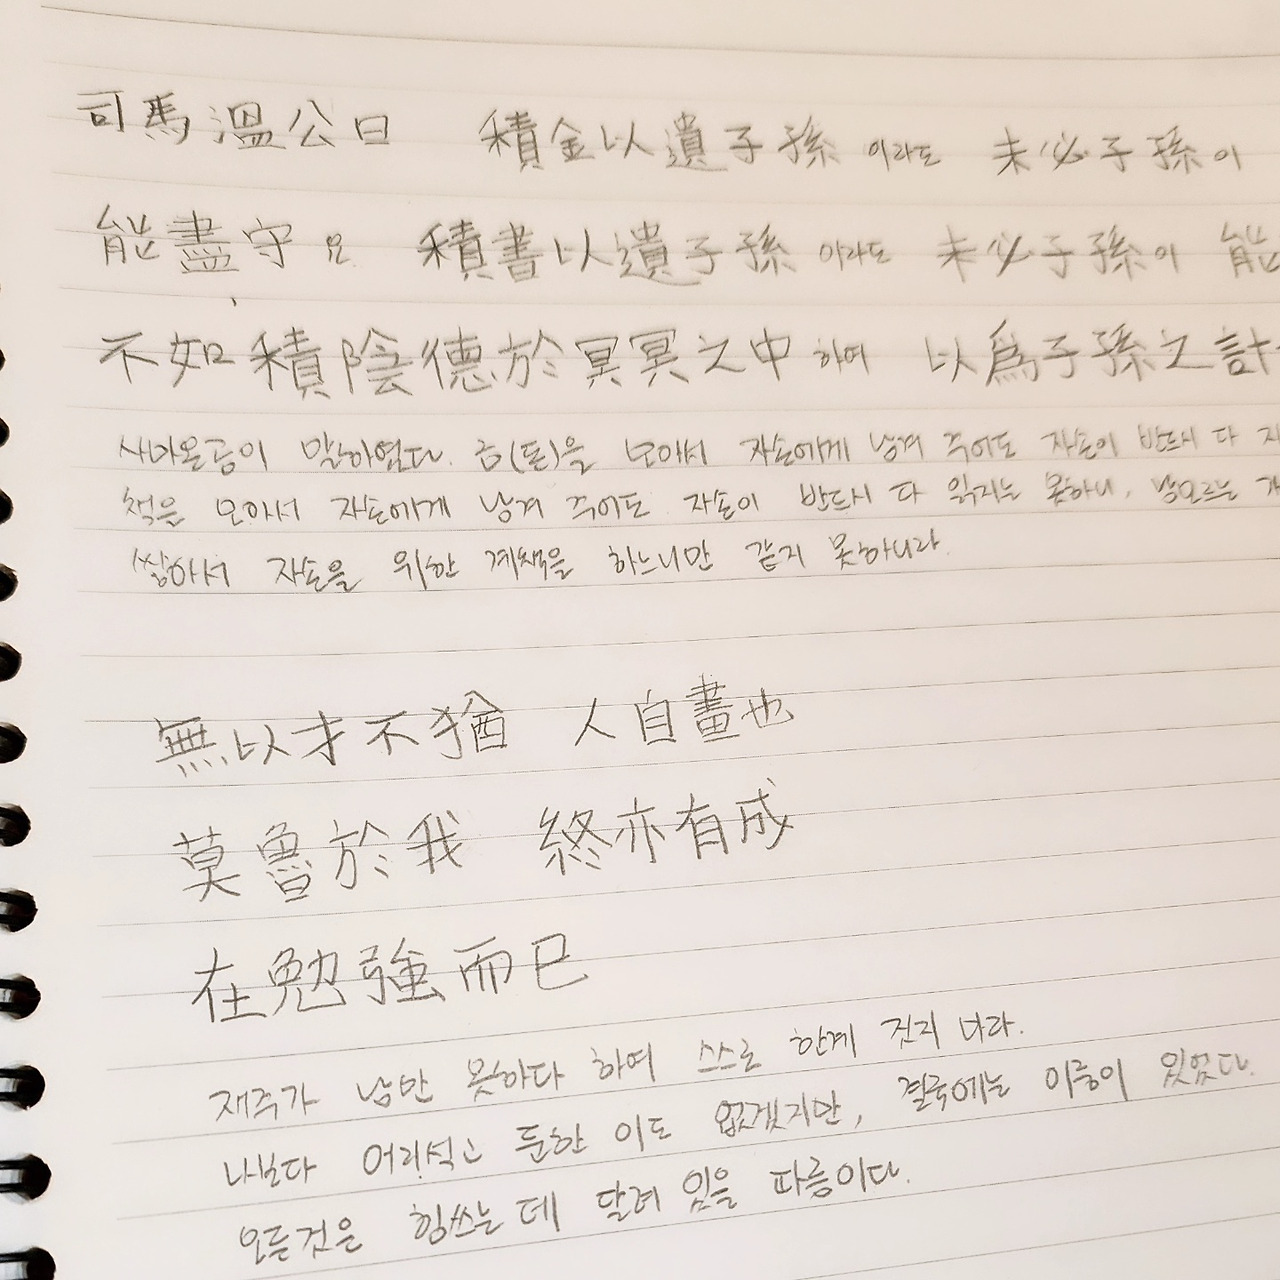 司馬溫公曰 積金以遺子孫 이라도 未必子孫이
能盡守요 積書以遺子孫 이라도 未必子孫이 能
不如積陰德於冥冥之中 하여 以爲子孫之計
사마온공이 말하였다. 금(돈)을 모아서 자손에게 남겨 주어도 자손이 반드시 다 지
책을 모아서 자손에게 남겨 주어도 자손이 반드시 다 읽지는 못하니, 남모르는 가
쌓아서 자손을 위한 계책을 하느니만 같지 못하니라.
無以才不猶 人自畫也
莫魯於我 終亦有成
在勉強而已
재주가 남만 못하다 하여 스스로 한계 짓지 너라.
나보다 어리석고 둔한 이도 없겠지만, 결국에는 이룸이 있었다.
모든것은 힘쓰는 데 달려 있을 따름이다.